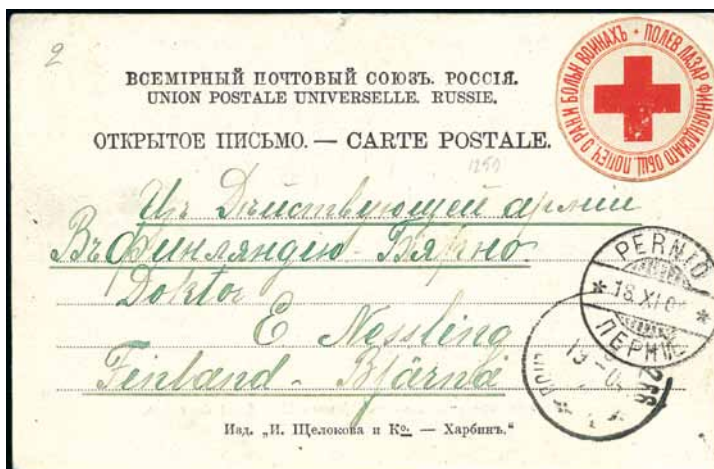 2
ВСЕМІРНЫЙ ПОЧТОВЫЙ СОЮЗЪ. РОССІЯ.
UNION POSTALE UNIVERSELLE. RUSSIE.
ОТКРЫТОЕ ПИСЬМО. — CARTE POSTALE.
• ПОЛЕВ ЛАЗАР ФИНЛЯНДСКАГО ОБЩ. ПОПЕЧ О РАН И БОЛЬН ВОИНАХЪ
1250
Изъ Дѣйствующей арміи
Въ Финляндію - Бярно.
Doktor
E Nessling
Feinland - Bjärnå
PERNIÖ
* 18. XI. 0 *
ПЕРНІЕ
Изд. „И. Щелокова и Кº. — Харбинъ.“